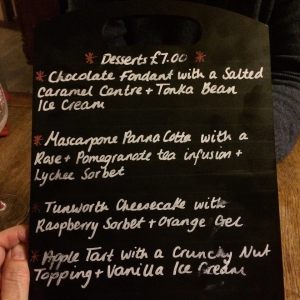 * Desserts £7.00 *
* Chocolate Fondant with a Salted
Caramel Centre + Tonka Bean
Ice Cream
* Mascarpone Panna Cotta with a
Rose + Pomegranate tea infusion +
Lychee Sorbet
* Tunworth Cheesecake with
Raspberry Sorbet + Orange Gel
* Apple Tart with a Crunchy Nut
Topping + Vanilla Ice Cream